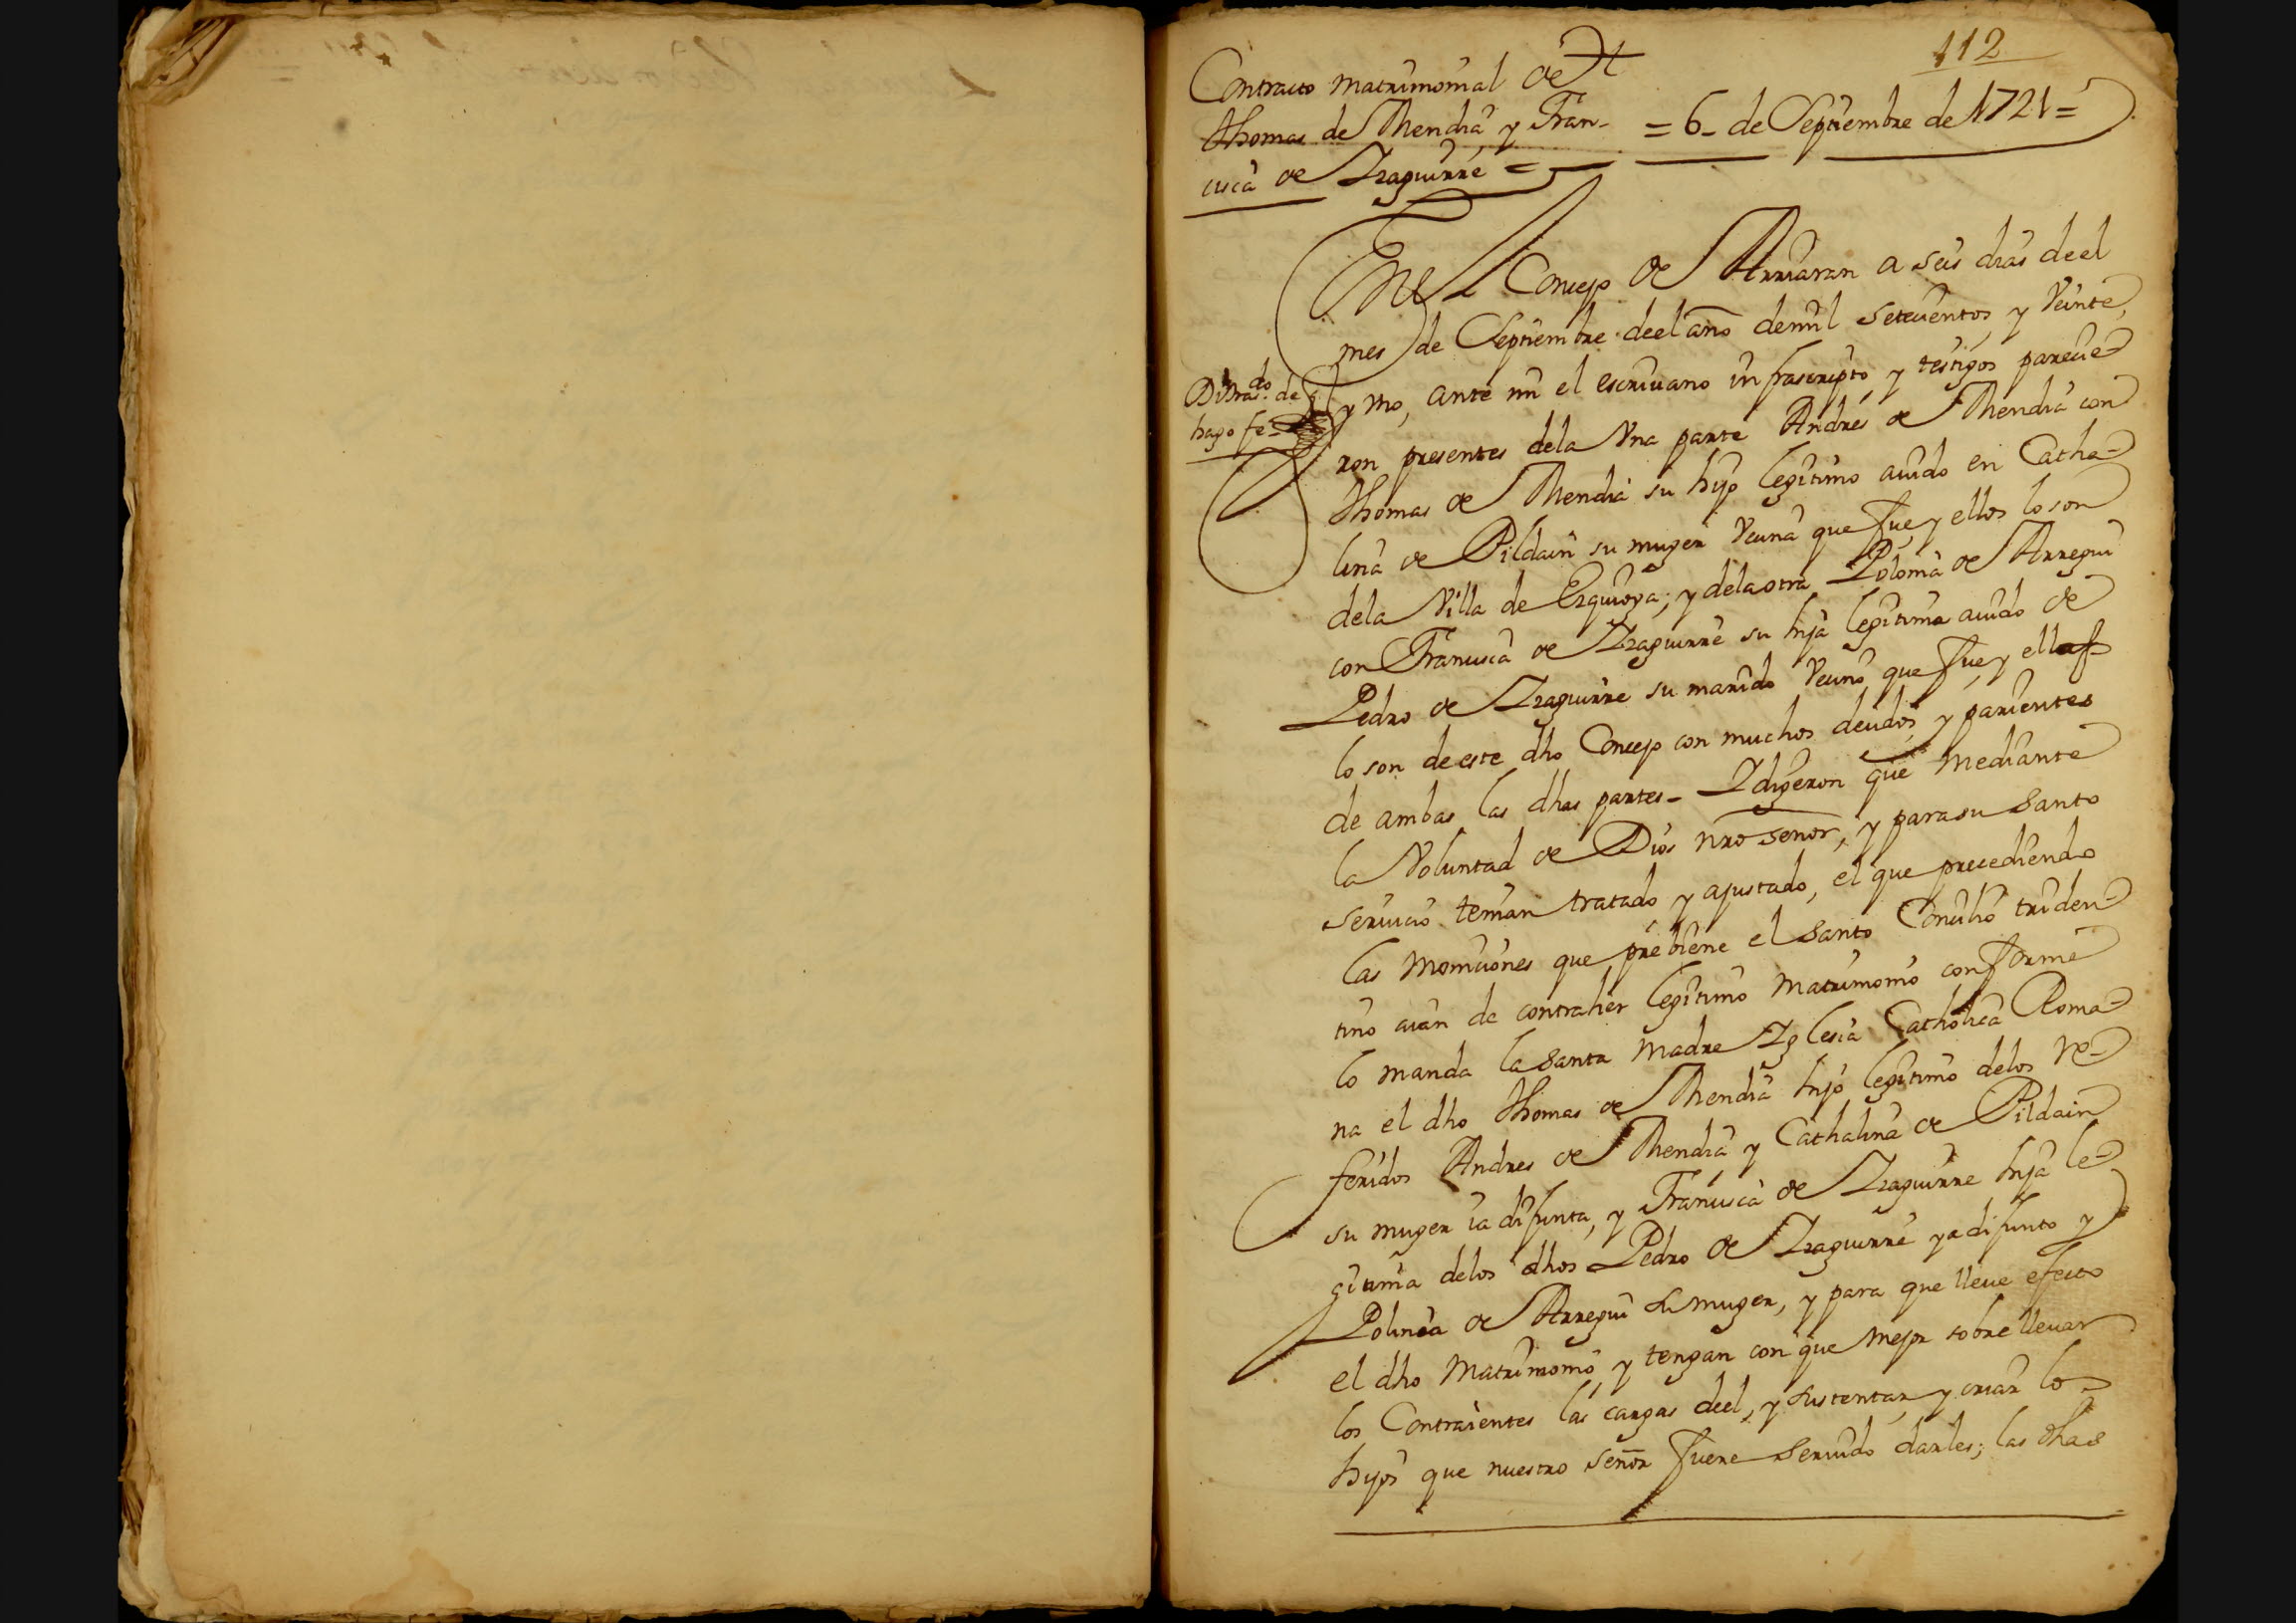 112
Contracto matrimonial de
thomas de Mendia, y Fran-
cisca de Yzaguirre =
= 6 - de Septiembre de 1721 =
En el Concejo de Arriaran a seis dias de el
mes de Septiembre de el año de mil setecientos, y Veinte,
y Vno, ante mi el escriuano infrascripto, y testigos parecie-
ron presentes de la Vna parte Andres de Mendia con
Thomas de Mendia su hijo legitimo auido en Catha-
lina de Pildain su muger Vecina que fue, y ellos lo son
de la Villa de Ezquioga; y de la otra Polonia de Arregui
con Francisca de Yzaguirre su hija legitima auido de
Pedro de Yzaguirre su marido Vecino que fue, y ellas
lo son de este dho Concejo con muchos deudos, y parientes
de ambas las dhas partes - Y digeron que mediante
la Voluntad de Dios nro señor, y para su santo
seruicio tenian tratado y ajustado, el que precediendo
las moniciones que prebiene el santo Concilio triden-
tino aian de contraher legitimo matrimonio conforme
lo manda la santa madre Yglesia Catholica Roma-
na el dho Thomas de Mendia hijo legitimo de los re-
feridos Andres de Mendia y Cathalina de Pildain
su muger ia difunta, y Francisca de Yzaguirre hija le-
gitima de los dhos Pedro de Yzaguirre ya difunto y
Polonia de Arregui su muger, y para que lleue efecto
el dho Matrimonio, y tengan con que mejor sobrelleuar
los Contraientes las cargas de el, y sustentar, y criar lo
hijos que nuestro señor fuere seruido darles; las dhas
Di tras.do de
hago fe -